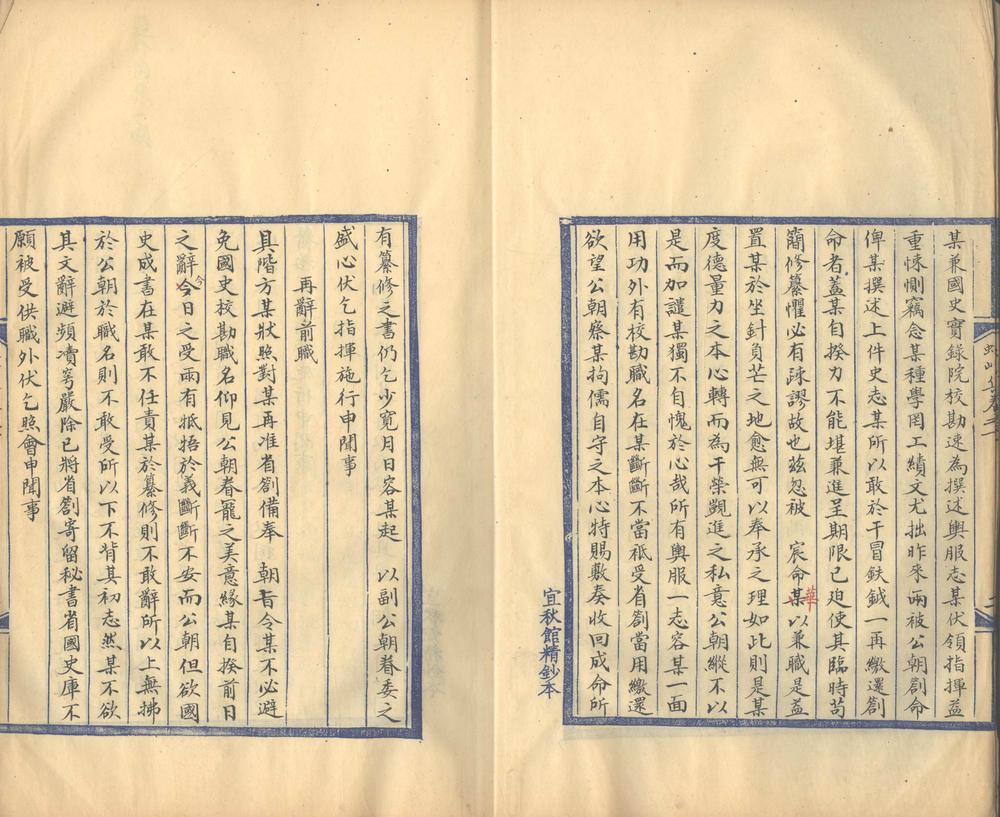 某兼國史實錄院校勘速為撰述輿服志某伏領指揮益
重悚惻竊念某種學罔工績文尤拙昨來兩被公朝劄命
俾某撰述上件史志某所以敢於干冒鈇鉞一再繳還劄
命者蓋某自揆力不能堪兼進呈期限已迫使其臨時苟
簡修纂懼必有疎謬故也茲忽被　宸命某以兼職是益
華
置某於坐針負芒之地愈無可以奉承之理如此則是某
度德量力之本心轉而為干榮覬進之私意公朝縱不以
是而加譴某獨不自愧於心哉所有輿服一志容某一面
用功外有校勘職名在某斷斷不當祇受省劄當用繳還
欲望公朝察某拘儒自守之本心特賜敷奏收回成命所
宜秋館精鈔本
有纂修之書仍乞少寬月日容某起　以副公朝眷委之
盛心伏乞指揮施行申聞事
再辭前職
具階方某狀照對某再准省劄備奉　朝旨令某不必避
免國史校勘職名仰見公朝眷寵之美意緣某自揆前日
之辭今今日之受兩有牴牾於義斷斷不安而公朝但欲國
史成書在某敢不任責某於纂修則不敢辭所以上無拂
於公朝於職名則不敢受所以下不背其初志然某不欲
其文辭避頻瀆穹嚴除已將省劄寄留秘書省國史庫不
願被受供職外伏乞照會申聞事